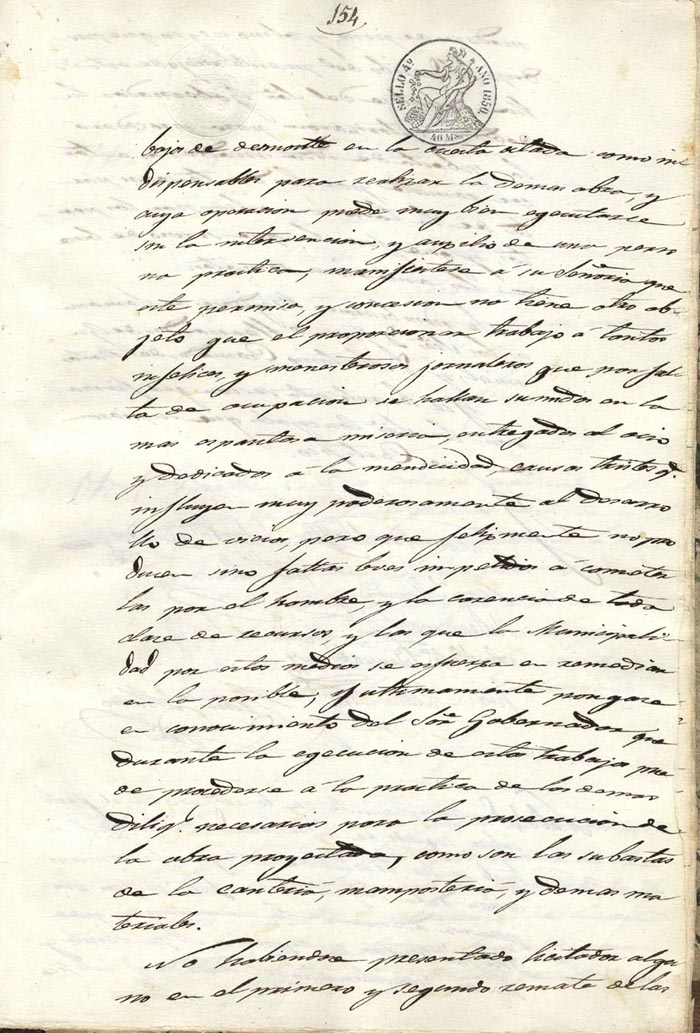 154
SELLO 4º AÑO 1850.
40 Ms.
bajos de desmonte en la cuesta citada como in
dispensables para realizar la demas obra, y
cuya operacion puede muy bien egecutarse
sin la intervencion, y auxilio de una perso
na practica, manifiestese á su Señoria que
este permiso, y concesion no tiene otro ob
jeto que el proporcionar trabajo á tantos
infelices, y menesterosos jornaleros que por fal
ta de ocupacion se hallan sumidos en la
mas espantosa miseria, entregados al ocio
y dedicados á la mendicidad, causas tantas q.
influyen muy poderosamente al desarro
llo de vicios, pero que felizmente no pro
ducen sino faltas leves impelidos á cometer
las por el hambre, y la carencia de toda
clase de recursos, y las que la Municipali
dad por estos medios se esfuerza en remediar
en lo posible, y ultimamente pongase
en conocimiento del Señr. Gobernador que
durante la egecucion de estos trabajos pue
de procederse á la practica de las demas
dilig.s necesarias para la prosecucion de
la obra proyectada, como son las subastas
de la canteria, mamposteria, y demas ma
teriales.
No habiendose presentado licitador algu
no en el primero y segundo remate de las